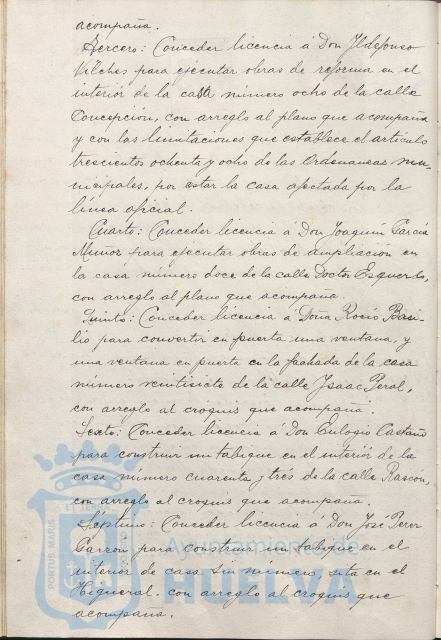 acompaña.
Tercero: Conceder licencia á Don Yldefonso
Vilches para ejecutar obras de reforma en el
interior de la casa número ocho de la calle
Concepción, con arreglo al plano que acompaña
y con las limitaciones que establece el artículo
trescientos ochenta y ocho de las Ordenanzas mu-
nicipales, por estar la casa afectada por la
línea oficial.
Cuarto: Conceder licencia á Don Joaquín García
Muñoz para ejecutar obras de ampliación en
la casa número doce de la calle Doctor Esquerdo,
con arreglo al plano que acompaña.
Quinto: Conceder licencia á Doña Rocío Basi-
lio para convertir en puerta una ventana, y
una ventana en puerta en la fachada de la casa
número veintisiete de la calle Ysaac Peral,
con arreglo al croquis que acompaña.
Sexto: Conceder licencia á Don Eulogio Castaño
para construir un tabique en el interior de la
casa número cuarenta y tres de la calle Rascón,
con arreglo al croquis que acompaña.
Séptimo: Conceder licencia á Don José Perez
Garrón para construir un tabique en el
interior de casa sin número, sita en el
Higueral, con arreglo al croquis que
acompaña.
PORTUS MARIS
ET TERRAE
Ayuntamiento de
HUELVA